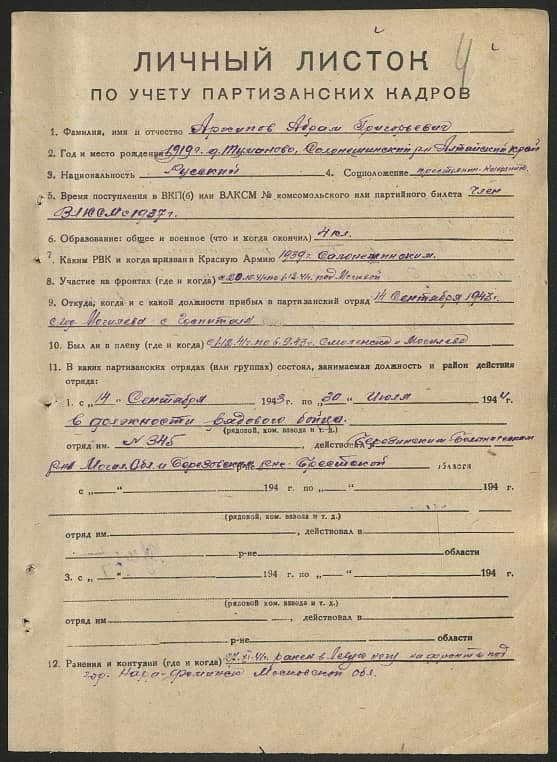 4
ЛИЧНЫЙ ЛИСТОК
ПО УЧЕТУ ПАРТИЗАНСКИХ КАДРОВ
1. Фамилия, имя и отчество Архипов Абрам Григорьевич
2. Год и место рождения 1919 г. д. Туманово, Солонешинский р-н Алтайский край
3. Национальность Русский 4. Соцположение крестьянин-колхозник
5. Время поступления в ВКП(б) или ВЛКСМ № комсомольского или партийного билета член
ВЛКСМ с 1937 г.
6. Образование: общее и военное (что и когда окончил) 4 кл.
7. Каким РВК и когда призван в Красную Армию 1939 г. Солонешинским.
8. Участие на фронтах (где и когда) по под Москвой
9. Откуда, когда и с какой должности прибыл в партизанский отряд 14 Сентября 1943 г.
с гор. Могилева с Госпиталя
10. Был ли в плену (где и когда) Смоленска и Могилева
11. В каких партизанских отрядах (или группах) состоял, занимаемая должность и район действия
отряда:
1. с „14“ Сентября 1943 г. по „30“ Июля 1944 г.
в должности рядового бойца.
(рядовой, ком. взвода и т. д.)
отряд им. № 345, действовал в Березинским
р-не Могил. Обл. и Березовским р-не Брестской области
с „ “ 194 г. по „ “ 194 г.
(рядовой, ком. взвода и т. д.)
отряд им. , действовал в
р-не области
3. с „ “ 194 г. по „ “ 194 г.
(рядовой, ком. взвода и т. д.)
отряд им. , действовал в
р-не области
12. Ранения и контузии (где и когда) ранен в левую ногу на фронте под
гор. Наро-Фоминск Московской обл.